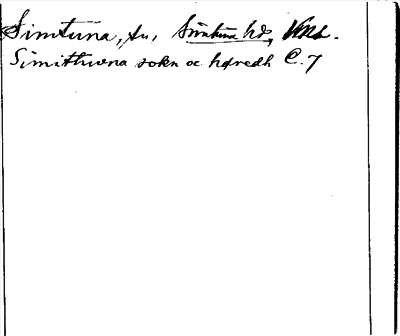 Simtuna, sn, Simtuna hd, Vml.
Simithwna sokn oc hæredh C. 7